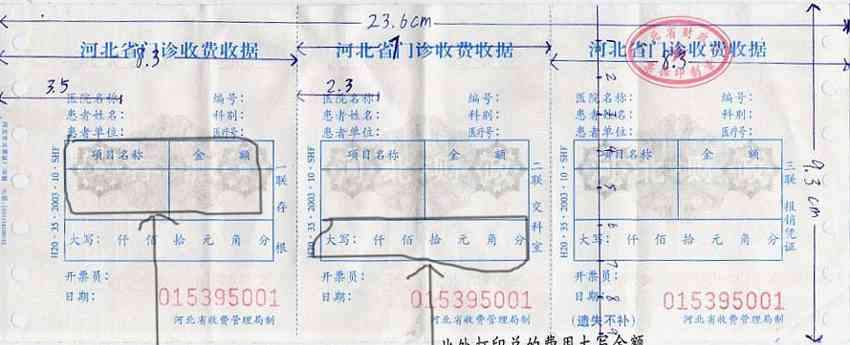 23.6cm
河北省门诊收费收据
8.3
3.5
医院名称:
编号:
患者姓名:
科别:
患者单位:
医疗号:
项目名称
金 额
大写: 仟 佰 拾 元 角 分
开票员:
日期:
015395001
河北省收费管理局制
H20·35·2003·10·SHF
一联存根
河北省门诊收费收据
7
2.3
医院名称:
编号:
患者姓名:
科别:
患者单位:
医疗号:
项目名称
金 额
大写: 仟 佰 拾 元 角 分
开票员:
日期:
015395001
河北省收费管理局制
H20·35·2003·10·SHF
二联交科室
河北省门诊收费收据
8.3
医院名称:
编号:
患者姓名:
科别:
患者单位:
医疗号:
项目名称
金 额
大写: 仟 佰 拾 元 角 分
开票员:
日期:
015395001
(遗失不补)
河北省收费管理局制
H20·35·2003·10·SHF
三联报销凭证
9.3cm
此处打印总的费用大写金额